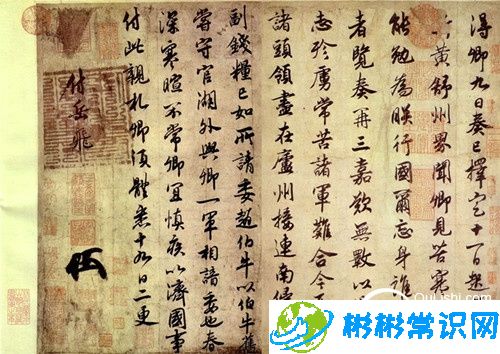 得卿九日奏已擇定十一日起
黃舒州界聞卿見苦寒
能勉為朕行國爾忘身誰
者覽奏再三嘉歎無斁以
志殄虜常苦諸軍難合今
諸頭領盡在廬州接連南侵
副錢糧已如所請委趙伯牛以伯牛舊
嘗守官湖外與卿一軍相諳委也春
深寒暄不常卿宜慎疾以濟國事
付此親札卿須體悉十九日二更
付岳飛
QuLishi.com
彬彬常识网